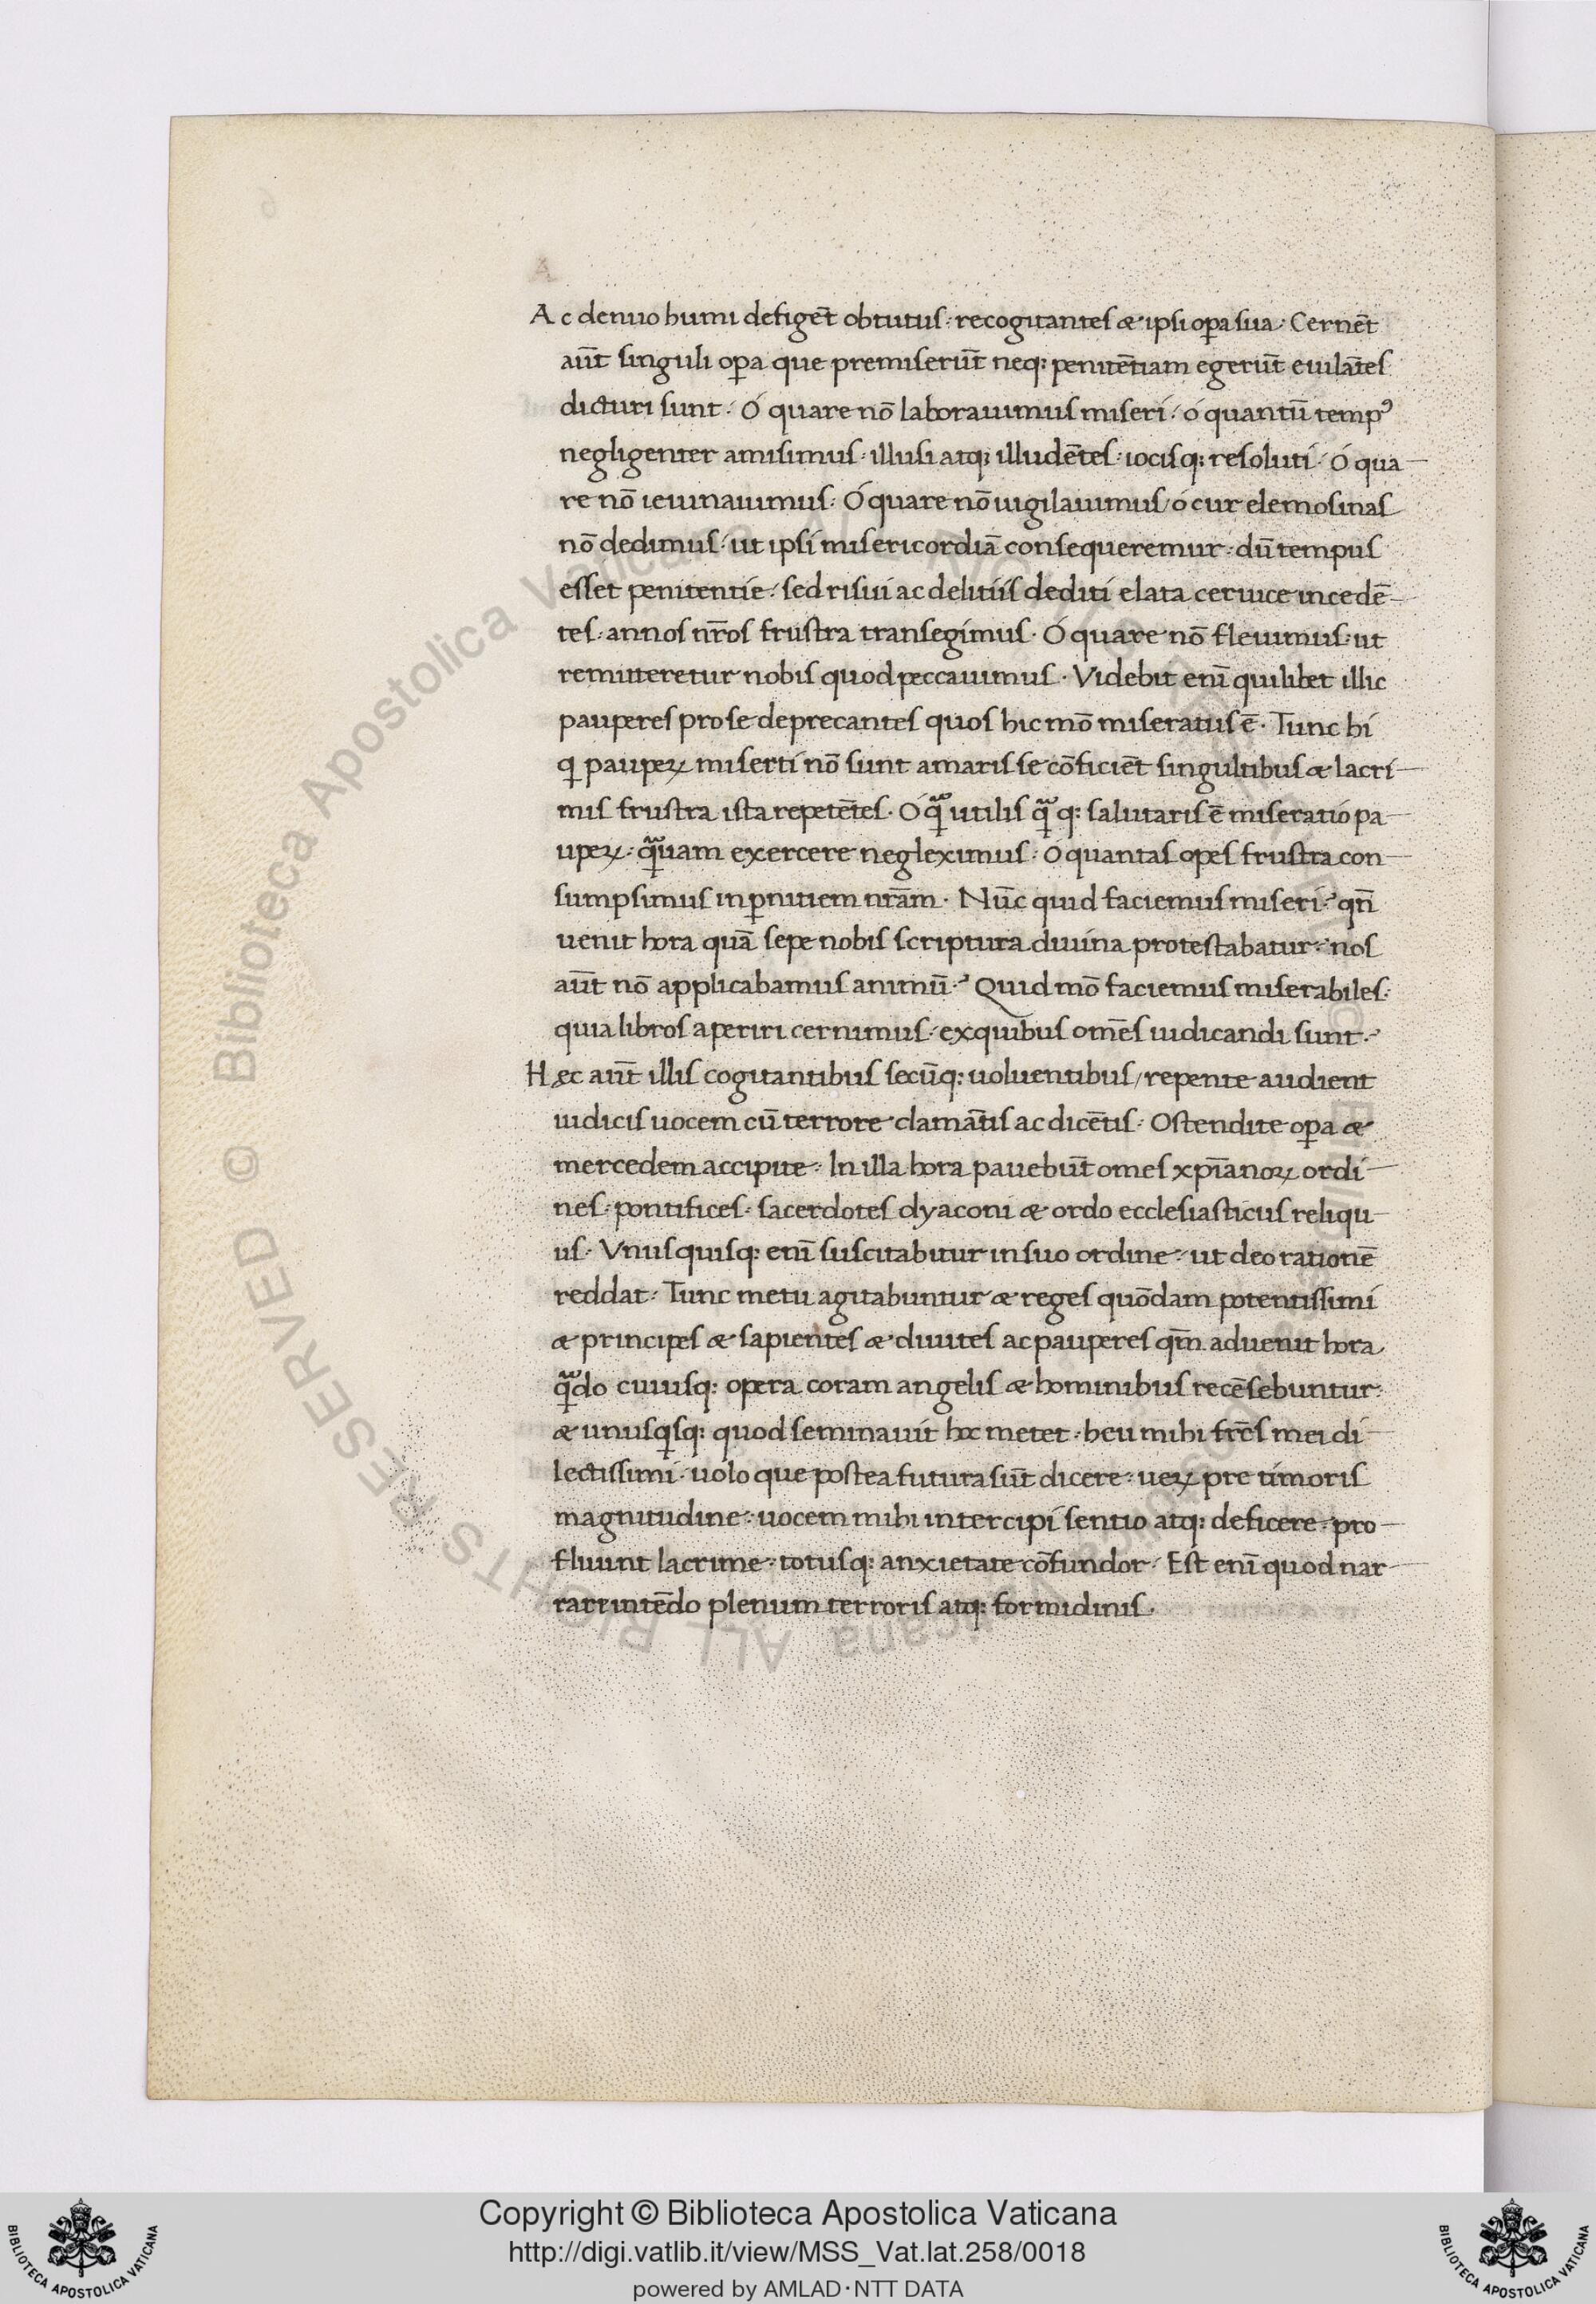 Ac denuo humi defigēt obtutus: recogitantes & ipsi oꝑa sua: Cernēt
aūt singuli oꝑa que premiserūt neq: penitētiam egerūt euilātes
dicturi sunt: Ó quare nō laborauimus miseri: ó quantū tempꝰ
negligenter amisimus: illusi atq: illudētes: iocisq: resoluti: Ó qua-
re nō ieiunauimus: Ó quare nō uigilauimus/ ó cur elemosinas
nō dedimus: ut ipsi misericordiā consequeremur: dū tempus
esset penitentie: sed risui ac delitiis dediti elata ceruice incedē-
tes: annos nr̄os frustra transegimus. Ó quare nō fleuimus: ut
remitteretur nobis quod peccauimus. Videbit enī quilibet illic
pauperes pro se deprecantes quos hic mō miseratus ē. Tunc hi
q pauꝑꝝ miserti nō sunt amaris se cōficiēt singultibus & lacri-
mis frustra ista repetētes. Ó q̄ utilis q̄ q: salutaris ē miseratio pa-
uꝑꝝ: q̄uam exercere negleximus: Ó quantas opes frustra con-
sumpsimus in ꝑnitiem nr̄am. Nūc quid faciemus miseri? qn̄
uenit hora quā sepe nobis scriptura diuina protestabatur: nos
aūt nō applicabamus animū? Quid mō faciemus miserabiles:
quia libros aperiri cernimus: ex quibus om̄es iudicandi sunt?
Hęc aūt illis cogitantibus secūq: uoluentibus/ repente audient
iudicis uocem cū terrore clamātis ac dicētis: Ostendite oꝑa &
mercedem accipite: In illa hora pauebūt omes xp̄ianoꝝ ordi-
nes: pontifices: sacerdotes dyaconi & ordo ecclesiasticus reliqu-
us. Vnusquisq: enī suscitabitur in suo ordine: ut deo rationē
reddat: Tunc metu agitabuntur & reges quōdam potentissimi
& principes & sapientes & diuites ac pauperes qm̄ aduenit hora
q̄do cuiusq: opera coram angelis & hominibus recēsebuntur:
& unusqsq: quod seminauit hoc metet: heu mihi fr̄es mei di-
lectissimi: uolo que postea futura sūt dicere: ueꝝ pre timoris
magnitudine: uocem mihi intercipi sentio atq: deficere: pro-
fluunt lacrime: totusq: anxietate cōfundor: Est enī quod nar-
rare intēdo plenum terroris atq: formidinis.
© Biblioteca Apostolica Vaticana ALL RIGHTS RESERVED
Copyright © Biblioteca Apostolica Vaticana
http://digi.vatlib.it/view/MSS_Vat.lat.258/0018
powered by AMLAD·NTT DATA
BIBLIOTECA APOSTOLICA VATICANA
BIBLIOTECA APOSTOLICA VATICANA